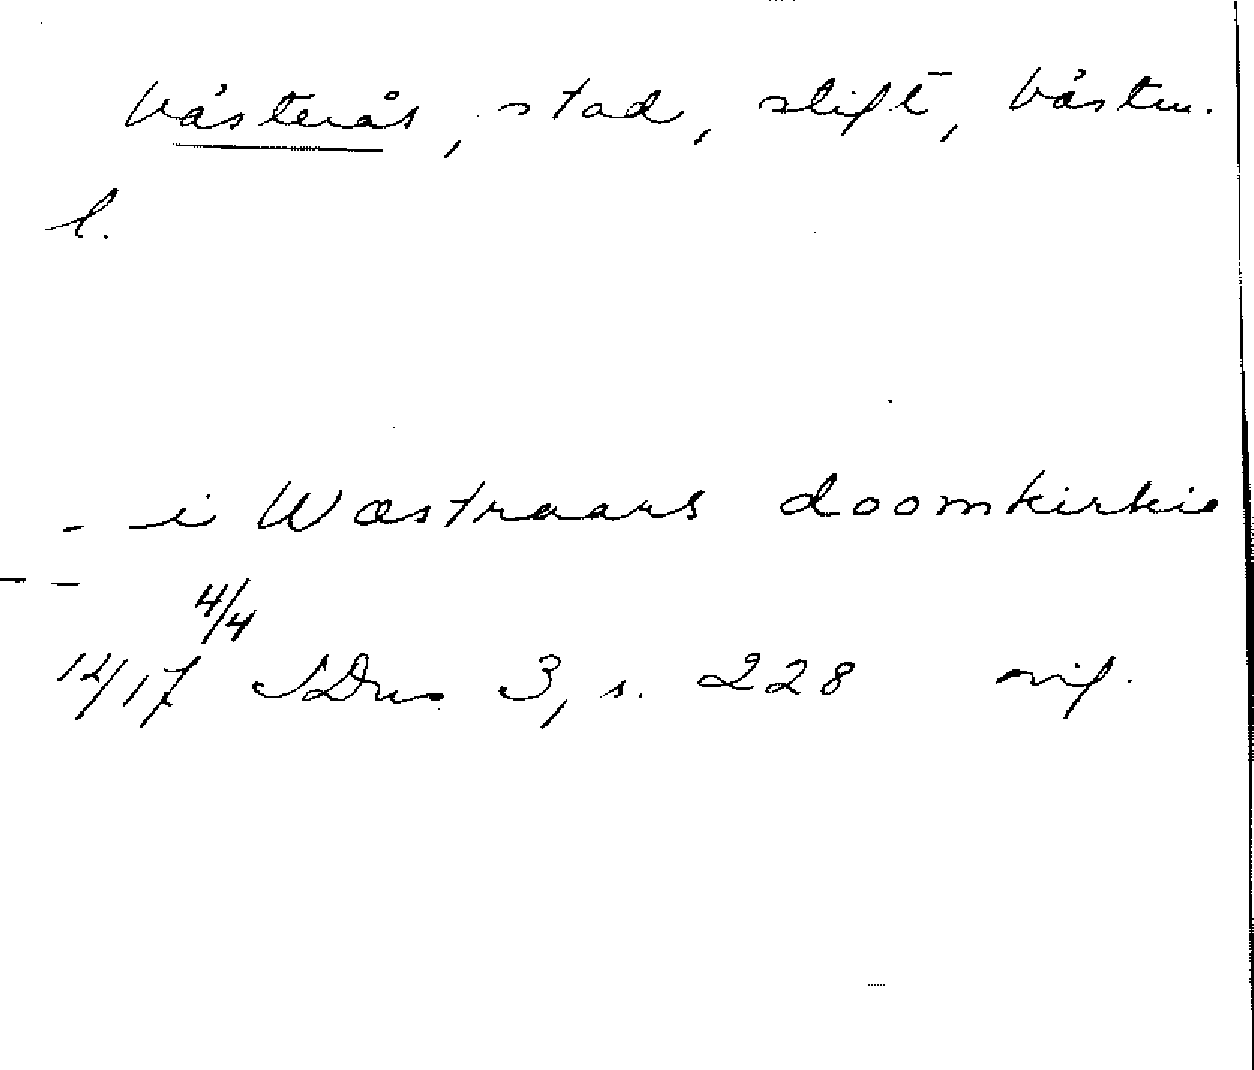 Västerås, stad, stift, Västm.
l.
- i Wæstraars doomkirkie
- -
4/4
1417 SDns 3, s. 228 orig.